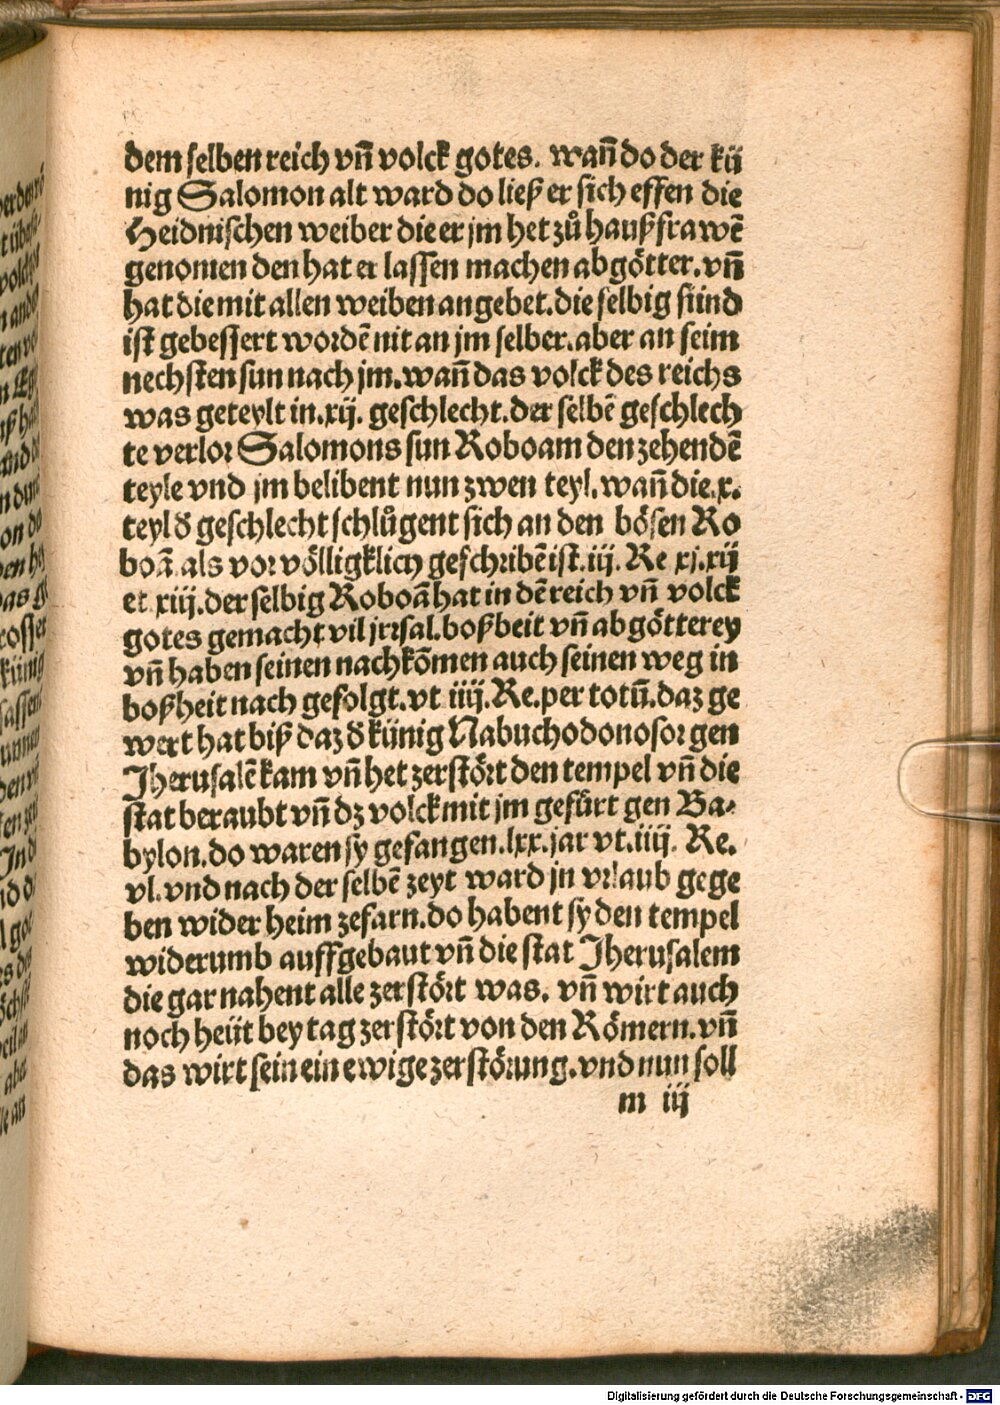 dem selben reich vñ volck gotes. wañ do der kü
nig Salomon alt ward do ließ er sich effen die
Heidnischen weiber die er jm het zů haußfrawẽ
genomen den hat er lassen machen abgötter. vñ
hat die mit allen weiben angebet. die selbig sünd
ist gebessert wordẽ nit an jm selber. aber an seim
nechsten sun nach jm. wañ das volck des reichs
was geteylt in .xij. geschlecht. der selbẽ geschlech
te verlor Salomons sun Roboam den zehendẽ
teyle vnd jm belibent nun zwen teyl. wañ die .x.
teyl d̕ geschlecht schlůgent sich an den bösen Ro
boã als vor völligklich geschribẽ ist. iij. Re xj. xij
et xiij. der selbig Roboã hat in dẽ reich vñ volck
gotes gemacht vil jrrsal. boßheit vñ abgötterey
vñ haben seinen nachkõmen auch seinen weg in
boßheit nach gefolgt. vt iiij. Re. per totũ. daz ge
wert hat biß daz d̕ künig Nabuchodonosor gen
Jherusalẽ kam vñ het zerstört den tempel vñ die
stat beraubt vñ dz volck mit jm gefürt gen Ba-
bylon. do waren sy gefangen .lxx. jar vt. iiij. Re.
vl. vnd nach der selbẽ zeyt ward jn vrlaub gege
ben wider heim zefarn. do habent sy den tempel
widerumb auffgebaut vñ die stat Jherusalem
die gar nahent alle zerstört was. vñ wirt auch
noch heüt bey tag zerstört von den Römern. vñ
das wirt sein ein ewige zerstörung. vnd nun soll
m iij
Digitalisierung gefördert durch die Deutsche Forschungsgemeinschaft - DFG